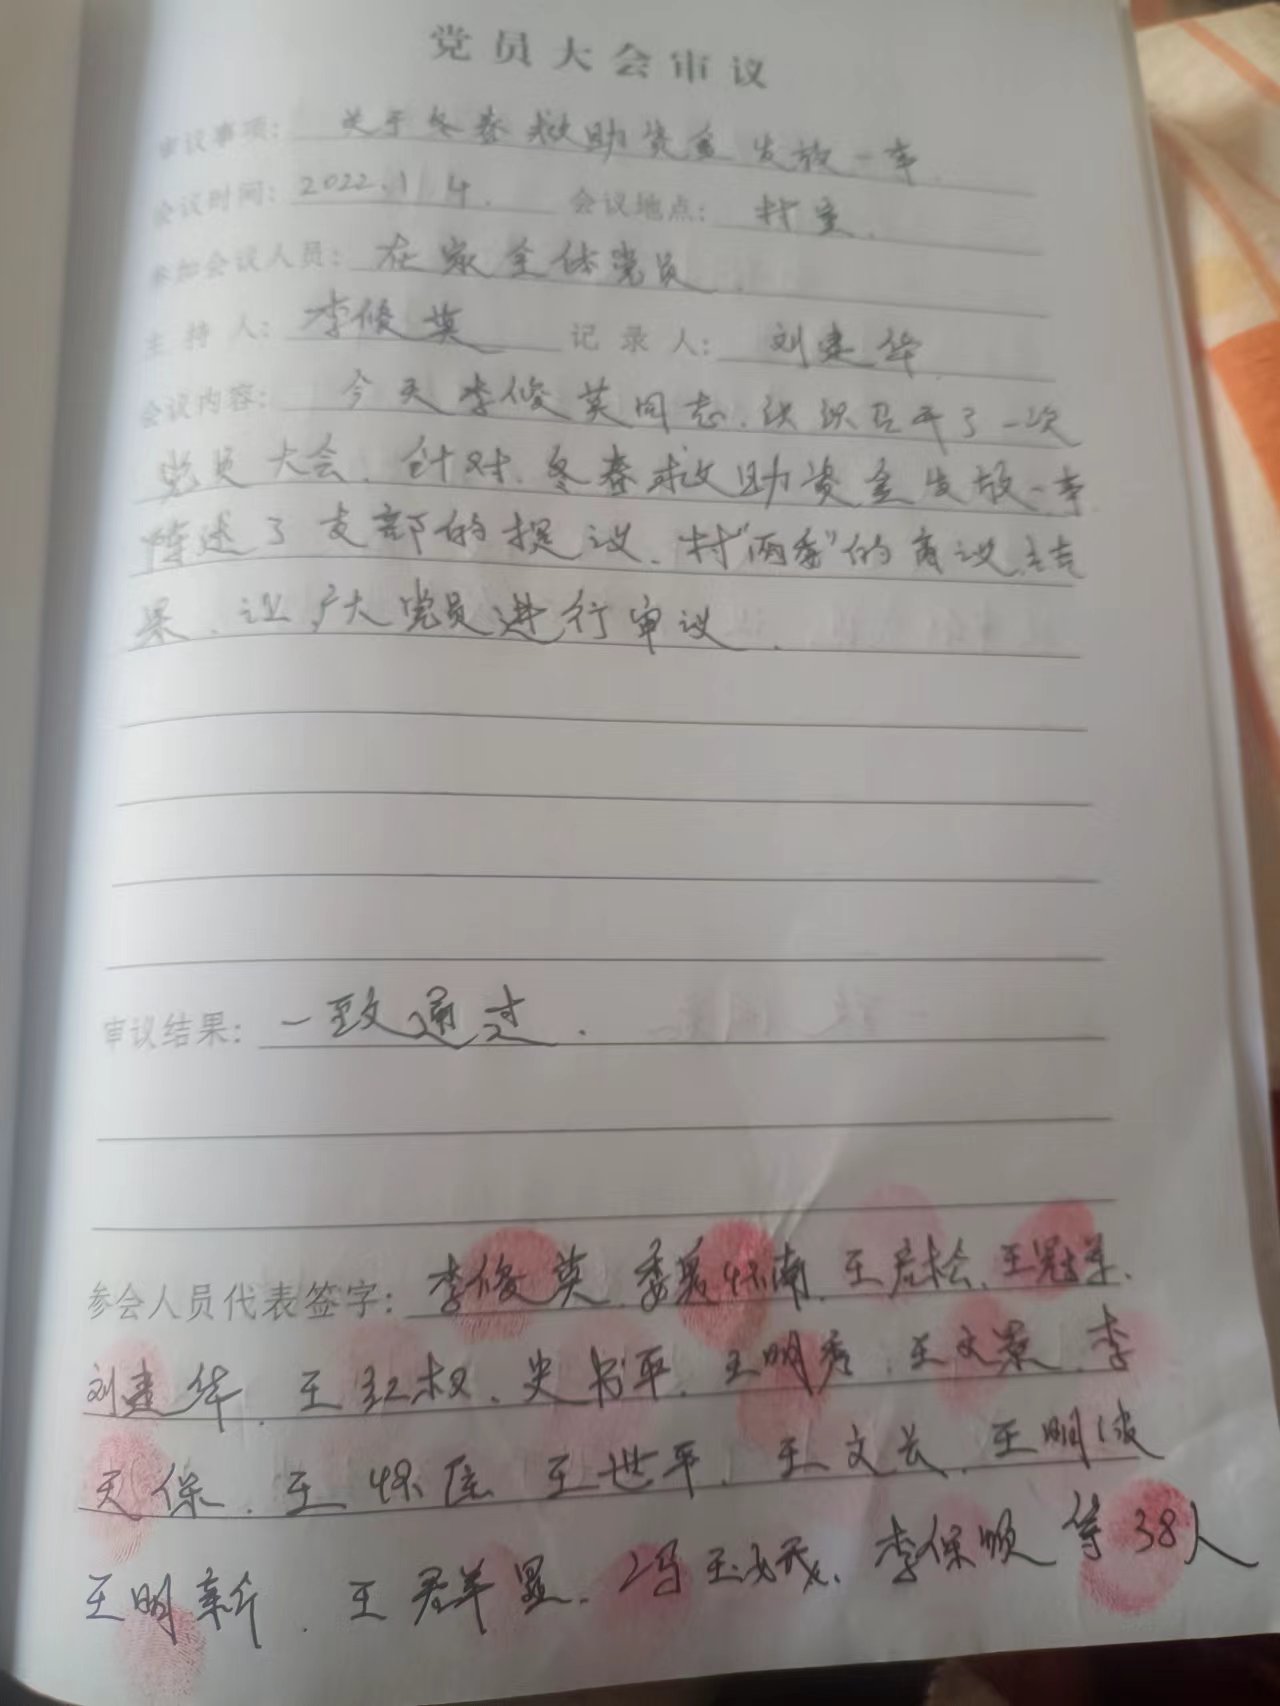 党员大会审议
审议事项: 关于冬春救助资金发放一事.
会议时间: 2022.1 4. 会议地点: 村室.
参加会议人员: 在家全体党员.
主持人: 李俊英 记录人: 刘建华.
会议内容: 今天李俊英同志.组织召开了一次
党员大会.针对.冬春救助资金发放一事
陈述了支部的提议.村"两委"的商议结
果.让广大党员进行审议.
审议结果: 一致通过.
参会人员代表签字: 李俊英. 王冠军.
刘建华. 王红权. 史书平. 王明秀. 王文景. 李
天保. 王怀臣 王世平. 王文长. 王明俊
王明新. 王群星. 李保顺等38人